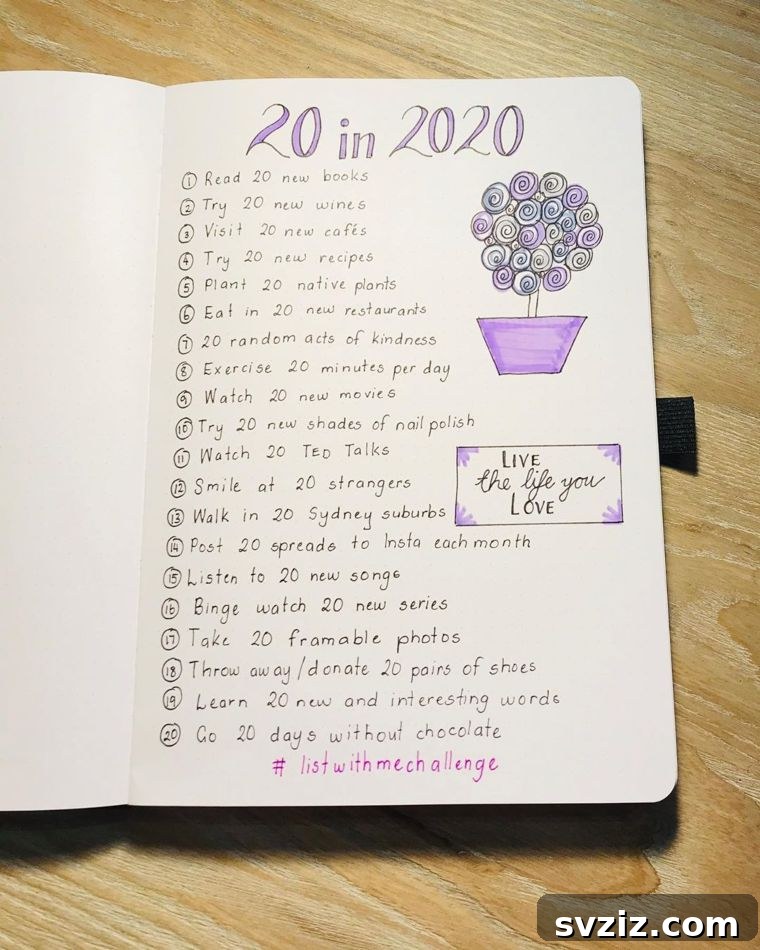 20 in 2020
① Read 20 new books
② Try 20 new wines
③ Visit 20 new cafés
④ Try 20 new recipes
⑤ Plant 20 native plants
⑥ Eat in 20 new restaurants
⑦ 20 random acts of kindness
⑧ Exercise 20 minutes per day
⑨ Watch 20 new movies
⑩ Try 20 new shades of nail polish
⑪ Watch 20 TED Talks
⑫ Smile at 20 strangers
⑬ Walk in 20 Sydney suburbs
⑭ Post 20 spreads to Insta each month
⑮ Listen to 20 new songs
⑯ Binge watch 20 new series
⑰ Take 20 framable photos
⑱ Throw away/donate 20 pairs of shoes
⑲ Learn 20 new and interesting words
⑳ Go 20 days without chocolate
# listwithmechallenge
LIVE
the life you
LOVE
svziz.com